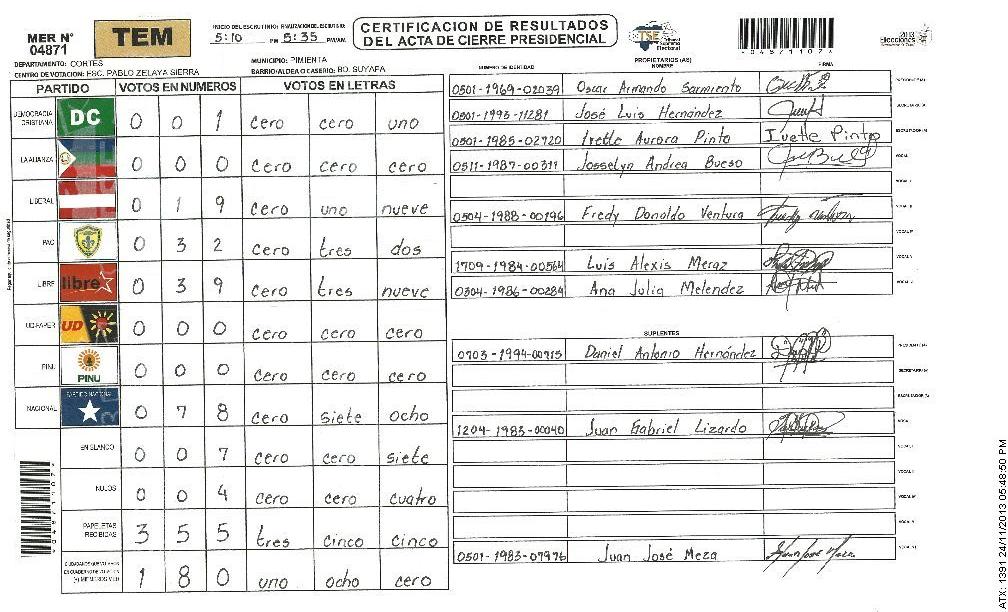 MER N° 04871
TEM
INICIO DEL ESCRUTINIO: FINALIZACION DEL ESCRUTINIO:
5:10 PM 5:35 P.M/A.M.
CERTIFICACION DE RESULTADOS
DEL ACTA DE CIERRE PRESIDENCIAL
TSE Tribunal Supremo Electoral
2013 Elecciones
*048711107*
DEPARTAMENTO: CORTES
MUNICIPIO: PIMIENTA
CENTRO DE VOTACION: ESC. PABLO ZELAYA SIERRA
BARRIO/ALDEA O CASERIO: BO. SUYAPA
PARTIDO VOTOS EN NUMEROS VOTOS EN LETRAS
DEMOCRACIA CRISTIANA DC 0 0 1 cero cero uno
LA ALIANZA 0 0 0 cero cero cero
LIBERAL 0 1 9 cero uno nueve
PAC 0 3 2 cero tres dos
LIBRE libre 0 3 9 cero tres nueve
UD-FAPER UD 0 0 0 cero cero cero
PINU PINU 0 0 0 cero cero cero
NACIONAL PARTIDO NACIONAL 0 7 8 cero siete ocho
EN BLANCO 0 0 7 cero cero siete
NULOS 0 0 4 cero cero cuatro
PAPELETAS RECIBIDAS 3 5 5 tres cinco cinco
1 8 0 uno ocho cero
PROPIETARIOS (AS)
NUMERO DE IDENTIDAD NOMBRE FIRMA
0501-1969-02039 Oscar Armando Sarmiento PRESIDENTE (A)
0501-1993-11281 José Luis Hernández SECRETARIO (A)
0501-1985-02720 Ivette Aurora Pinto Ivette Pinto ESCRUTADOR (A)
0511-1987-00311 Josselyn Andrea Bueso VOCAL I
0504-1988-00196 Fredy Donaldo Ventura
1709-1984-00564 Luis Alexis Meraz
0304-1986-00284 Ana Julia Melendez
SUPLENTES
0703-1994-00915 Daniel Antonio Hernández PRESIDENTE (A)
SECRETARIO (A)
ESCRUTADOR (A)
1204-1983-00040 Juan Gabriel Lizardo
0501-1983-07976 Juan José Meza
ATX: 1391 24/11/2013 05:48:50 PM